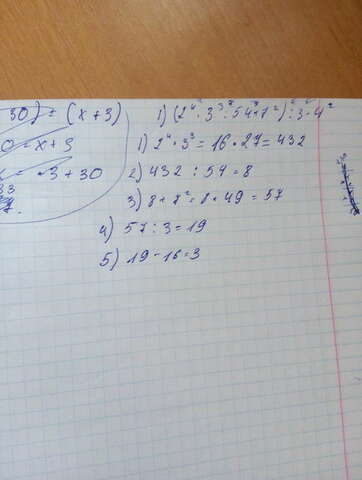 30) = (x + 3)
0 = x + 3
= -3 + 30
33
1) (2⁴ · 3³ : 54 + 7²) : 3 - 4²
1) 2⁴ · 3³ = 16 · 27 = 432
2) 432 : 54 = 8
3) 8 + 7² = 8 + 49 = 57
4) 57 : 3 = 19
5) 19 - 16 = 3